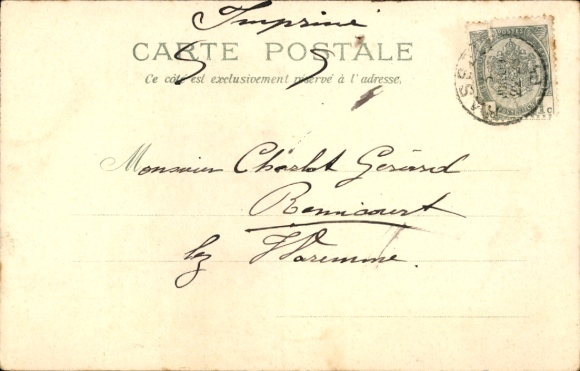 Imprimé
CARTE POSTALE
Ce côté est exclusivement réservé à l'adresse.
Monsieur Charlot Gérard
Remicourt
lez Waremme.